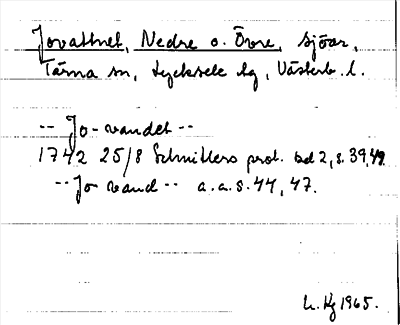 Jovattnet, Nedre o. Övre, sjöar,
Tärna sn, Lycksele lg, Västerb. l.
-- Jo-vandet --
1742 25/8 Schnitlers prot. bd 2, s. 39, 49.
-- Jo vand -- a.a.s. 44, 47.
L. Hg 1965.